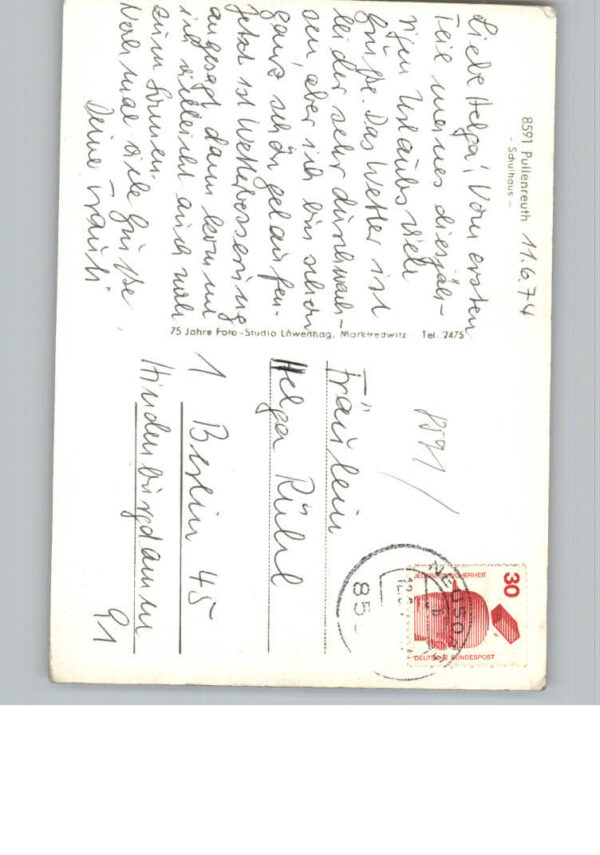 8591 Pullenreuth
- Schulhaus -
11.6.74
Liebe Helga! Vom ersten
Teil meines diesjäh-
rigen Urlaubs viele
Grüße. Das Wetter ist
leider sehr durchwach-
sen, aber ich bin schon
ganz schön gelaufen.
Jetzt ist Wetterbesserung
angesagt, dann komm
ich vielleicht auch noch
zum Sonnen.
Noch mal viele Grüße
Deine
75 Jahre Foto-Studio Löwenhag, Marktredwitz - Tel. 2475
8591/
Fräulein
Helga Rühl
1 Berlin 45
Hindenburgdamm
91
JEDERZEIT SICHERHEIT
30
DEUTSCHE BUNDESPOST
NEUSO
85